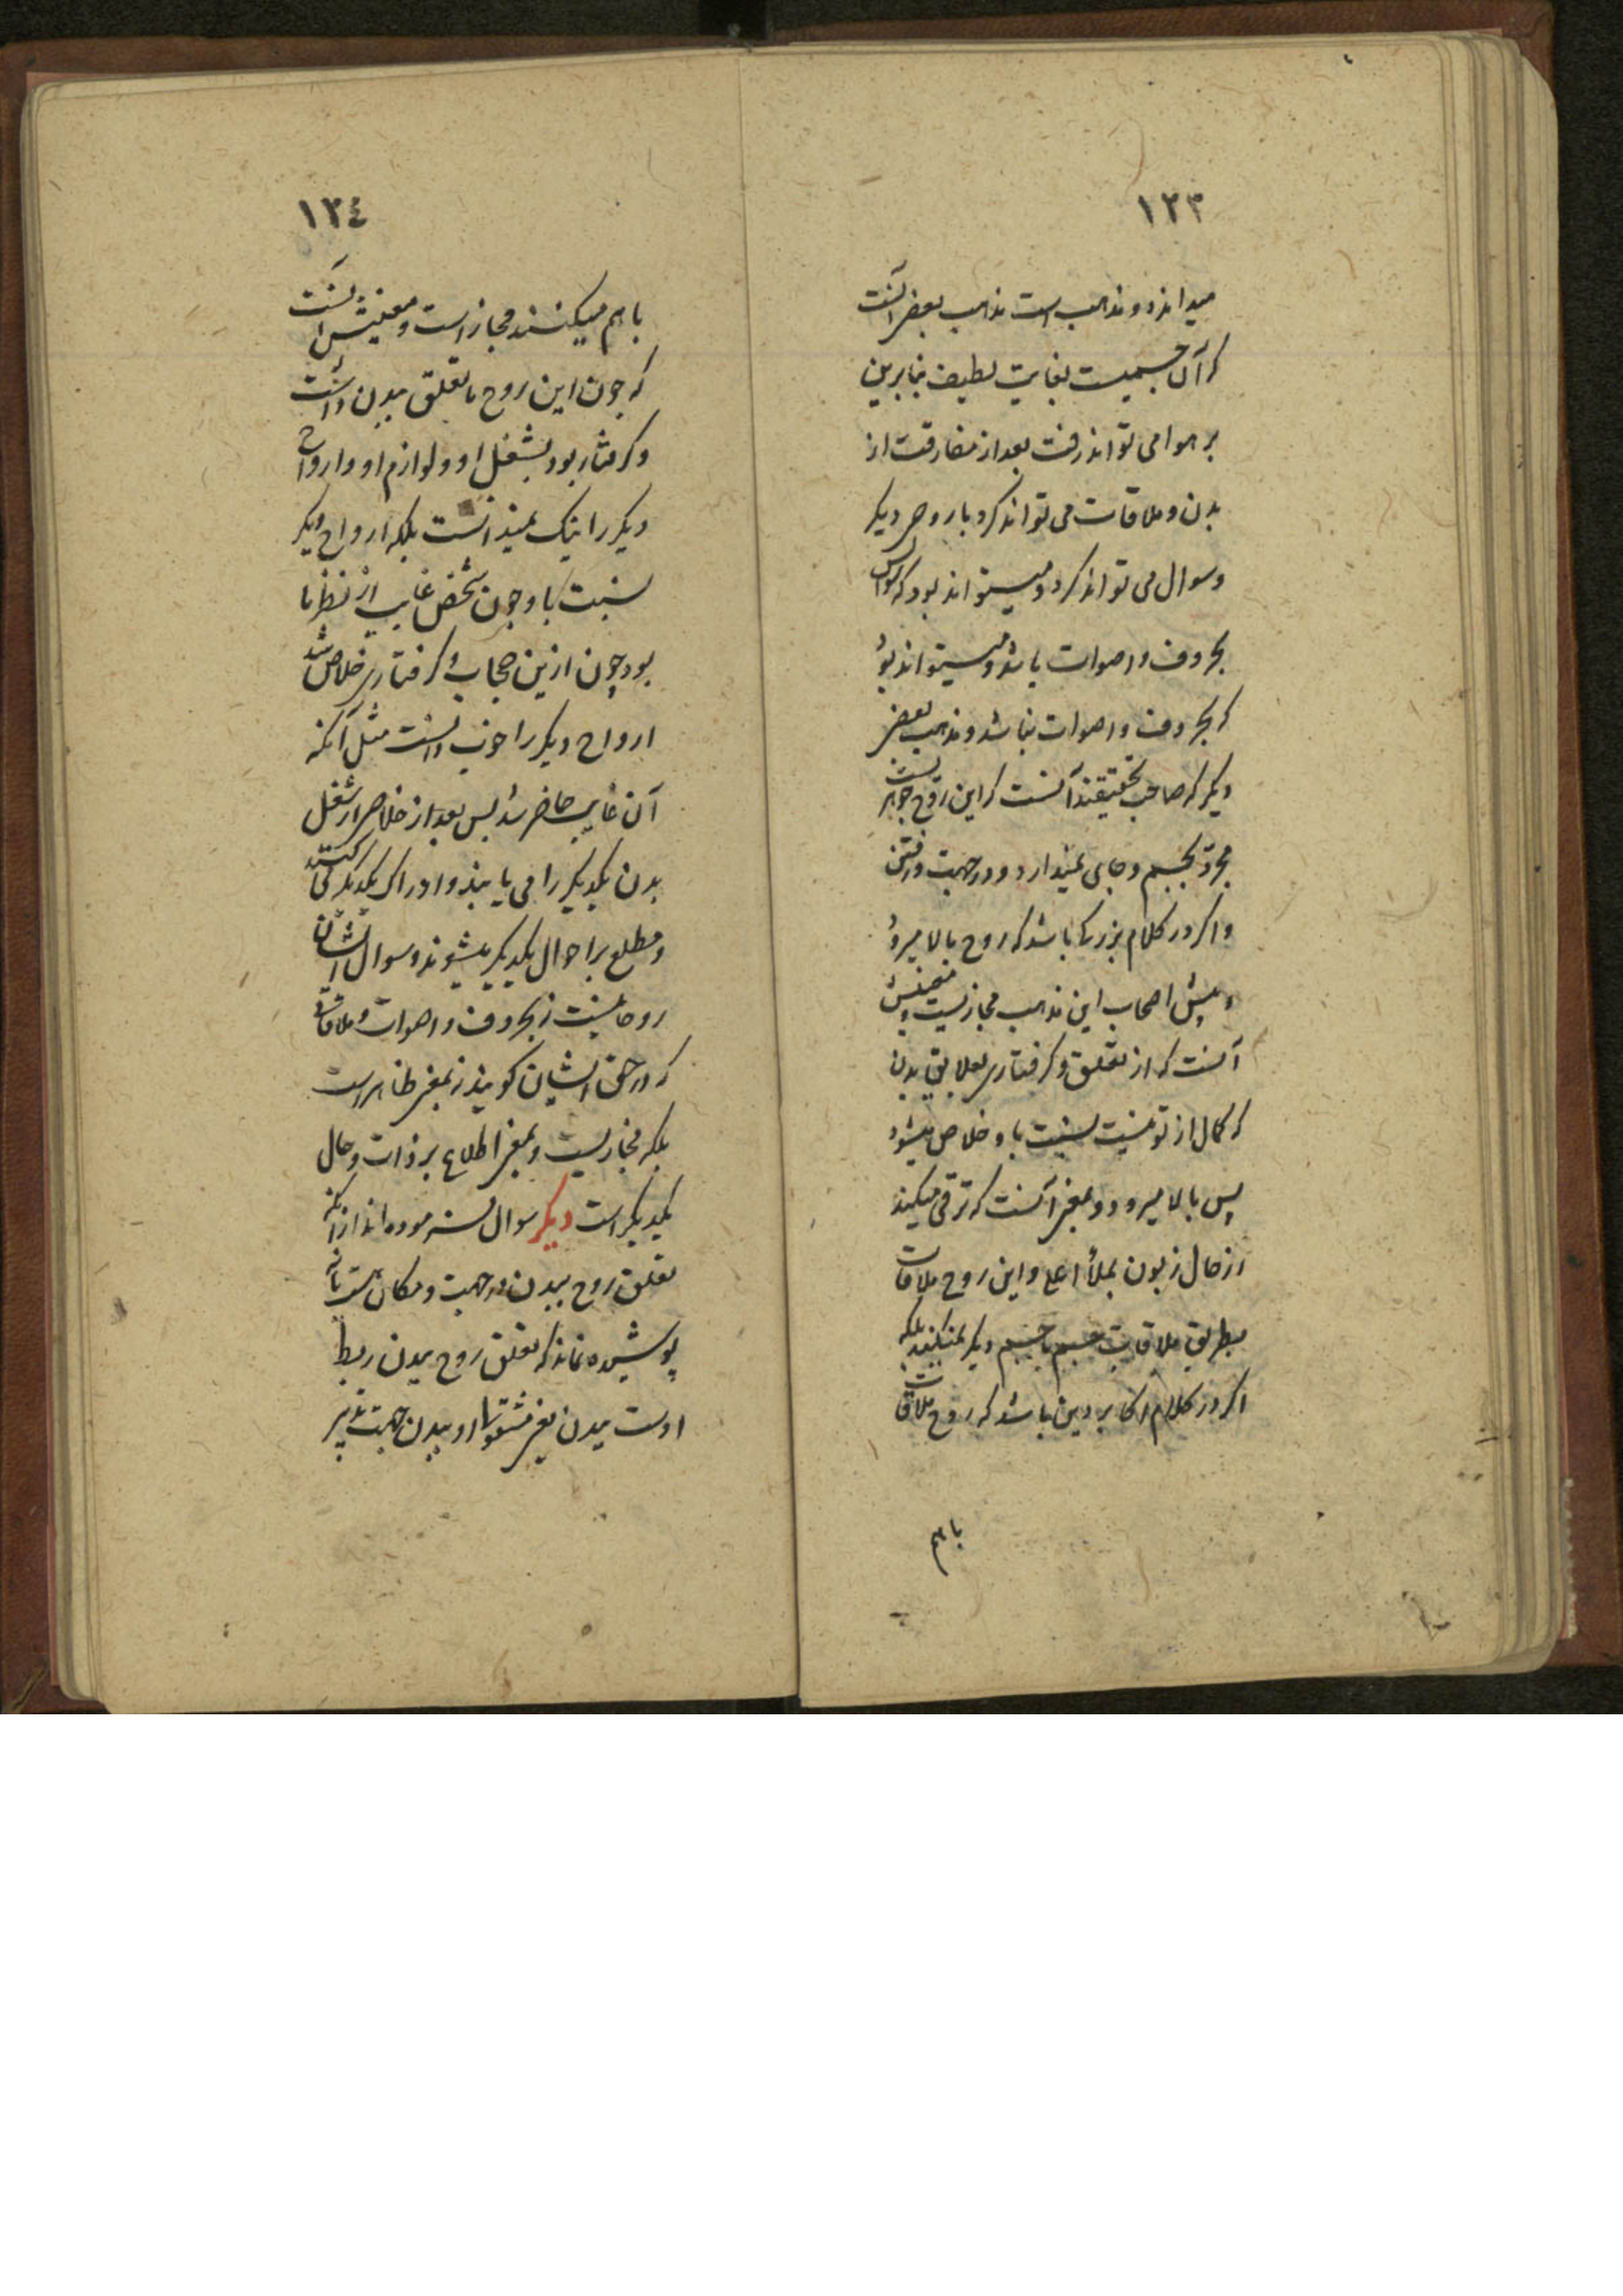 ١٢٣
میداند دو مذهب است مذهب بعضی آنست
که آن جسمیست بغایت لطیف بنابرین
بر هوا می تواند رفت بعد از مفارقت از
بدن و ملاقات می تواند کرد با روحی دیکر
وسوال می تواند کرد ومیتواند بود که سوالش
بحروف واصوات باشد و میتواند بود
که بحروف واصوات نباشد ومذهب بعضی
دیکر که صاحب تحقیقند آنست که این روح جوهریست
مجرد بجسم وجای نمیدارد ودر جهت ورفتن
واکر در کلام بزرکی باشد که روح بالا میرود
پیش اصحاب این مذهب مجازیست ومعنیش
آنست که از تعلق وکرفتاری بعلایق بدن
که کمال از تو نیست نسبت باو خلاص میشود
پس بالا میرود وبمعنی آنست که ترقی میکند
از حال زبون بملأ اعلی واین روح ملاقات
بطریق ملاقات جسم با جسم دیکر نمیکند بلکه
اکر در کلام اکابر دین باشد که روح ملاقات
باهم
١٢٤
باهم میکنند مجاز است ومعنیش آنست
که چون این روح ما تعلق ببدن داشت
وکرفتار بود بشغل او ولوازم او وارواح
دیکر را نیک نمیدانست بلکه ارواح دیکر
نسبت باو چون شخص غایب از نظر ما
بود چون ازین حجاب وکرفتاری خلاص شد
ارواح دیکر را خوب دانست مثل آنکه
آن غایب حاضر شد پس بعد از خلاص از شغل
بدن یکدیکر را می یابند وادراک یکدیکر می کنند
ومطلع بر احوال یکدیکر میشوند وسوال ایشان
روحانیست نه بحروف واصوات وملاقات
که در حق ایشان کویند نه بمعنی ظاهر است
بلکه مجازیست وبمعنی اطلاع بر ذات وحال
یکدیکر است دیکر سوال فرموده اند از آنکه
تعلق روح ببدن در جهت ومکان هست یا نه
پوشیده نماند که تعلق روح ببدن ربط
اوست ببدن یعنی مشغولی او ببدن جهت تدبیر